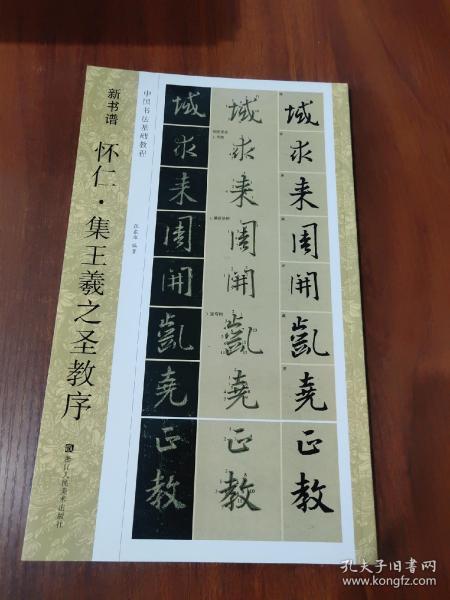 新书谱
怀仁·集王羲之圣教序
浙江人民美术出版社
中国书法基础教程
编著
域 域 域
求 求 求
来 来 来
周 周 周
開 開 開
凱 凱 凱
堯 堯 堯
正 正 正
教 教 教
孔夫子旧书网
www.kongfz.com